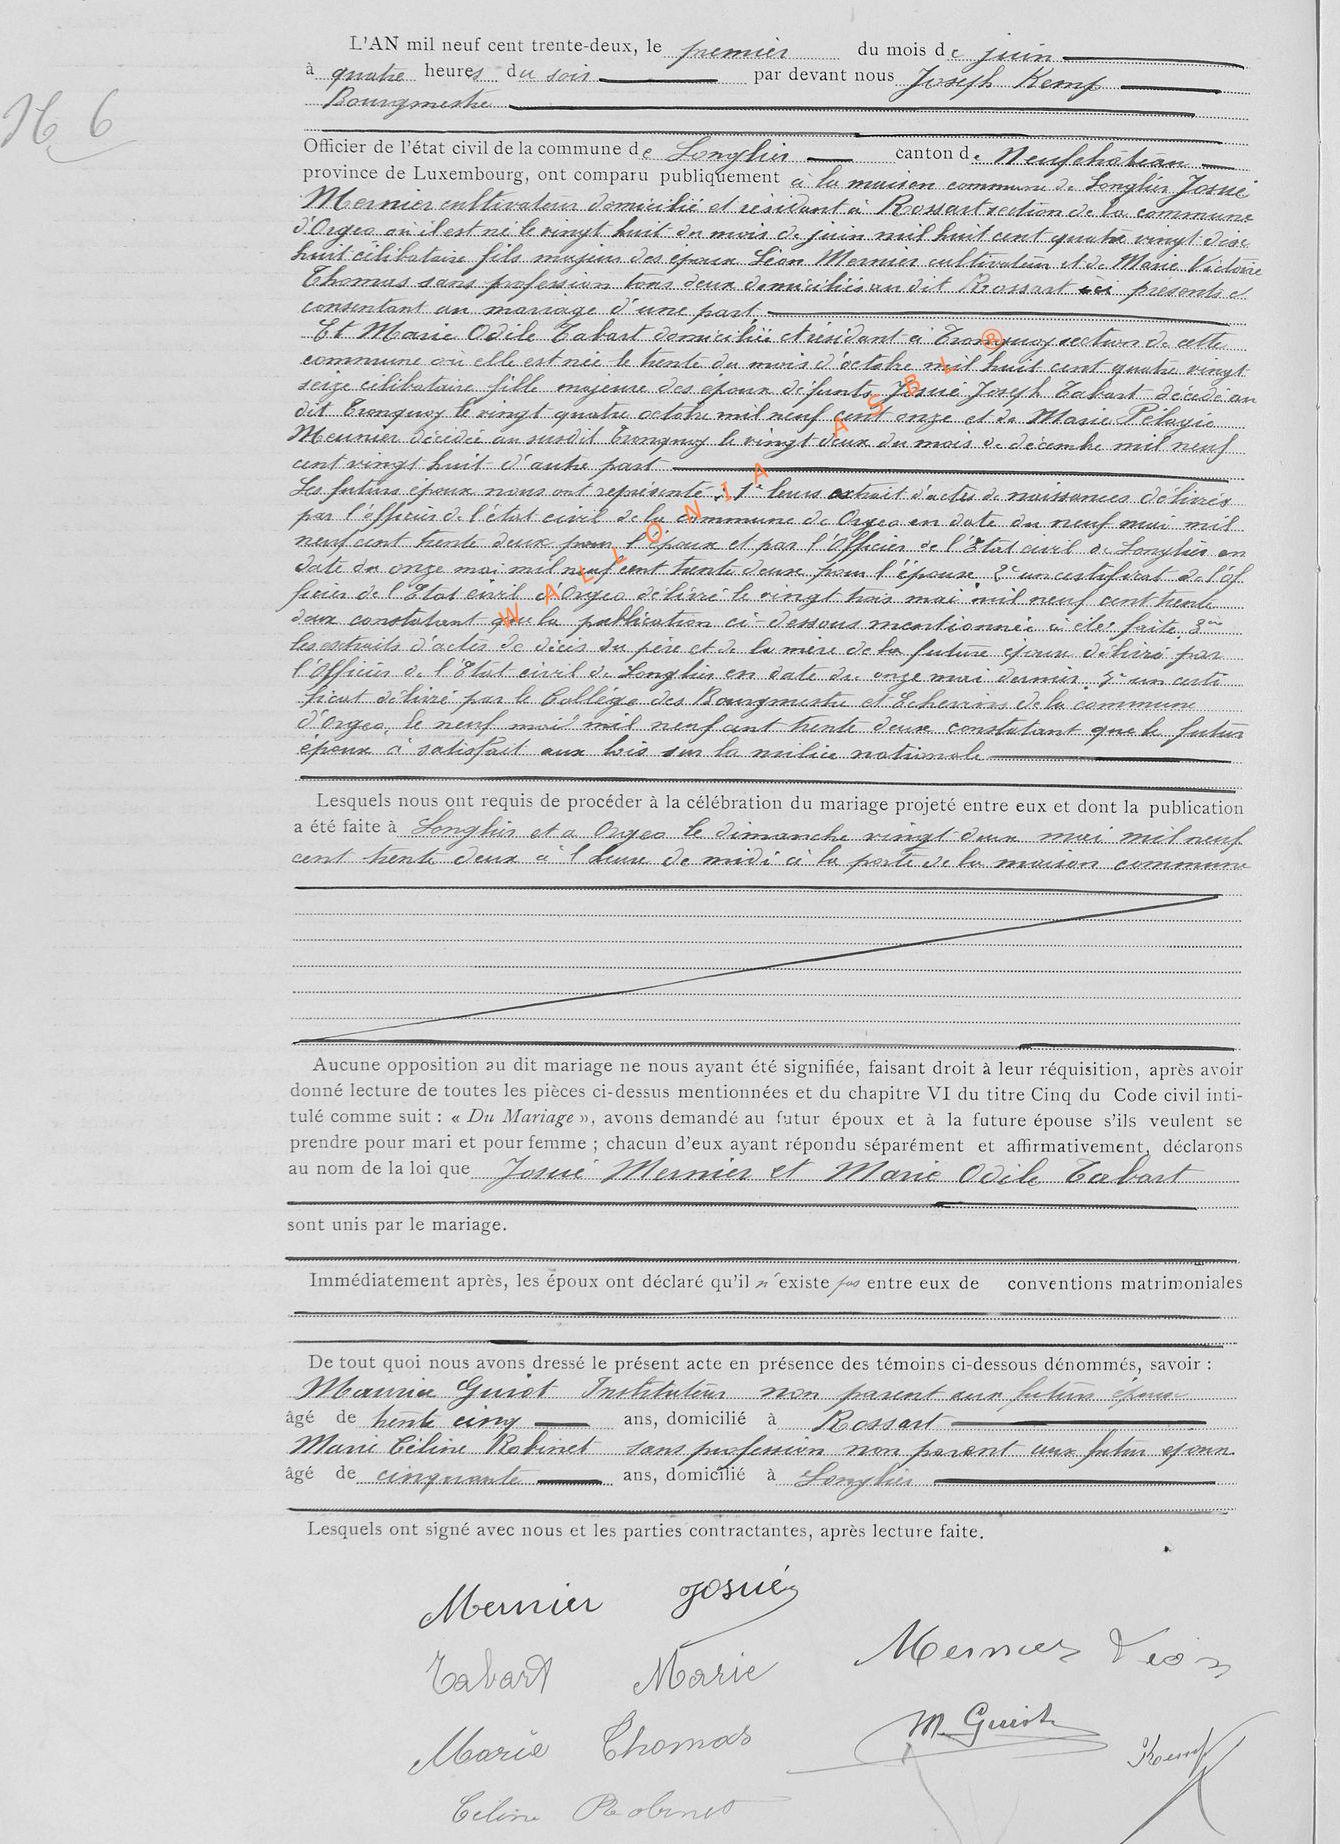 L'AN mil neuf cent trente-deux, le premier du mois de juin
à quatre heures du soir par devant nous Joseph Kemp
Bourgmestre
N 6
Officier de l'état civil de la commune de Longlier canton de Neufchâteau
province de Luxembourg, ont comparu publiquement à la maison commune de Longlier Josué
Mernier cultivateur domicilié et résidant à Rossart section de la commune
d'Orgeo où il est né le vingt huit du mois de juin mil huit cent quatre vingt dix
huit célibataire fils majeur des époux Léon Mernier cultivateur et de Marie Victoire
Thomas sans profession tous deux domiciliés au dit Rossart ici présents et
consentant au mariage d'une part
Et Marie Odile Tabart domiciliée et résidant à Tronquoy section de cette
commune où elle est née le trente du mois d'octobre mil huit cent quatre vingt
seize célibataire fille majeure des époux défunts Josué Joseph Tabart décédé au
dit Tronquoy le vingt quatre octobre mil neuf cent onze et de Marie Pélagie
Meunier décédée au susdit Tronquoy le vingt deux du mois de décembre mil neuf
cent vingt huit d'autre part
Les futurs époux nous ont représenté : 1° leurs extrait d'actes de naissances délivrés
par l'officier de l'état civil de la commune de Orgeo en date du neuf mai mil
neuf cent trente deux pour l'époux et par l'Officier de l'Etat civil de Longlier en
date du onze mai mil neuf cent trente deux pour l'épouse, 2° un certifirat de l'of
ficier de l'Etat civil d'Orgeo délivré le vingt trois mai mil neuf cent trente
deux constatant que la publication ci-dessous mentionnée a été faite. 3°
les extraits d'actes de décès du père et de la mère de la future épouse délivré par
l'Officier de l'Etat civil de Longlier en date du onze mai dernier. un certi
ficat délivré par le Collège des Bourgmestre et Echevins de la commune
d'Orgeo, le neuf mai mil neuf cent trente deux constatant que le futur
époux à satisfait aux lois sur la milice nationale
WALLONIA ASBL ®
Lesquels nous ont requis de procéder à la célébration du mariage projeté entre eux et dont la publication
a été faite à Longlier et a Orgeo le dimanche vingt-deux mai mil neuf
cent trente deux à l'heure de midi à la porte de la maison commune
Aucune opposition au dit mariage ne nous ayant été signifiée, faisant droit à leur réquisition, après avoir
donné lecture de toutes les pièces ci-dessus mentionnées et du chapitre VI du titre Cinq du Code civil inti-
tulé comme suit : « Du Mariage », avons demandé au futur époux et à la future épouse s'ils veulent se
prendre pour mari et pour femme ; chacun d'eux ayant répondu séparément et affirmativement, déclarons
au nom de la loi que Josué Mernier et Marie Odile Tabart
sont unis par le mariage.
Immédiatement après, les époux ont déclaré qu'il n'existe pas entre eux de conventions matrimoniales
De tout quoi nous avons dressé le présent acte en présence des témoins ci-dessous dénommés, savoir :
Maurice Guiot Instituteur non parent aux futurs époux
âgé de trente cinq ans, domicilié à Rossart
Marie Céline Robinet sans profession non parent aux futur époux
âgé de cinquante ans, domicilié à Longlier
Lesquels ont signé avec nous et les parties contractantes, après lecture faite.
Mernier Josué
Mernier Léon
Tabart Marie
M. Guiot
Marie Thomas
Kemp
Céline Robinet